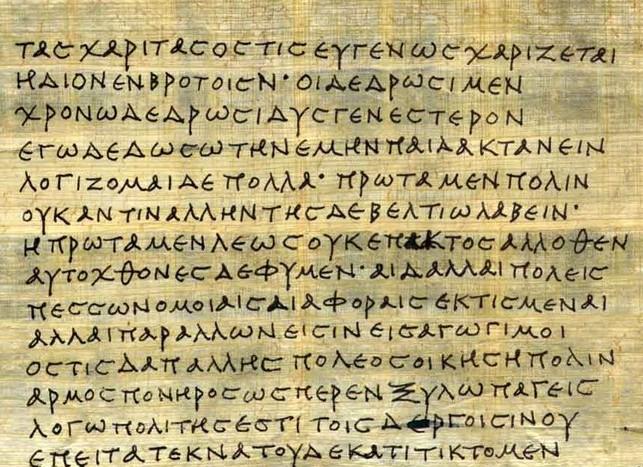 ΤΑϹ ΧΑΡΙΤΑϹ ΟϹΤΙϹ ΕΥΓΕΝΩϹ ΧΑΡΙΖΕΤΑΙ
ΗΔΙΟΝ ΕΝ ΒΡΟΤΟΙϹΝ· ΟΙ ΔΕ ΔΡΩϹΙ ΜΕΝ
ΧΡΟΝΩ ΔΕ ΔΡΩϹΙ ΔΥϹΓΕΝΕϹΤΕΡΟΝ
ΕΓΩ ΔΕ ΔΩϹΩ ΤΗΝ ΕΜΗΝ ΠΑΙΔΑ ΚΤΑΝΕΙΝ
ΛΟΓΙΖΟΜΑΙ ΔΕ ΠΟΛΛΑ· ΠΡΩΤΑ ΜΕΝ ΠΟΛΙΝ
ΟΥΚ ΑΝ ΤΙΝ ΑΛΛΗΝ ΤΗϹΔΕ ΒΕΛΤΙΩ ΛΑΒΕΙΝ·
Η ΠΡΩΤΑ ΜΕΝ ΛΕΩϹ ΟΥΚ ΕΠΑΚΤΟϹ ΑΛΛΟΘΕΝ
ΑΥΤΟΧΘΟΝΕϹ Δ ΕΦΥΜΕΝ· ΑΙ Δ ΑΛΛΑΙ ΠΟΛΕΙϹ
ΠΕϹϹΩΝ ΟΜΟΙΑΙϹ ΔΙΑΦΟΡΑΙϹ ΕΚΤΙϹΜΕΝΑΙ
ΑΛΛΑΙ ΠΑΡ ΑΛΛΩΝ ΕΙϹΙΝ ΕΙϹΑΓΩΓΙΜΟΙ
ΟϹΤΙϹ Δ ΑΠ ΑΛΛΗϹ ΠΟΛΕΟϹ ΟΙΚΗϹΗ ΠΟΛΙΝ
ΑΡΜΟϹ ΠΟΝΗΡΟϹ ΩϹΠΕΡ ΕΝ ΞΥΛΩ ΠΑΓΕΙϹ
ΛΟΓΩ ΠΟΛΙΤΗϹ ΕϹΤΙ ΤΟΙϹ Δ ΕΡΓΟΙϹΙΝ ΟΥ
ΕΠΕΙΤΑ ΤΕΚΝΑ ΤΟΥΔ ΕΚΑΤΙ ΤΙΚΤΟΜΕΝ